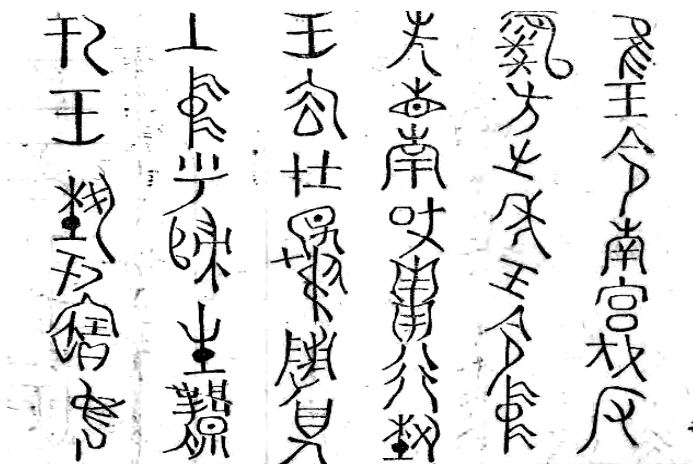 隹王令南宮伐反
虎方之年王令中
先省南或貫行埶
王应在夔
中乎歸生鳳
于王埶于寶彝